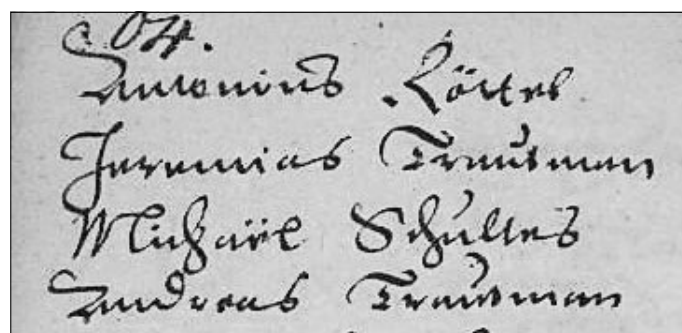 04.
Antonius Röttel
Jeremias Trautman
Michaël Schultes
Andreas Trautman